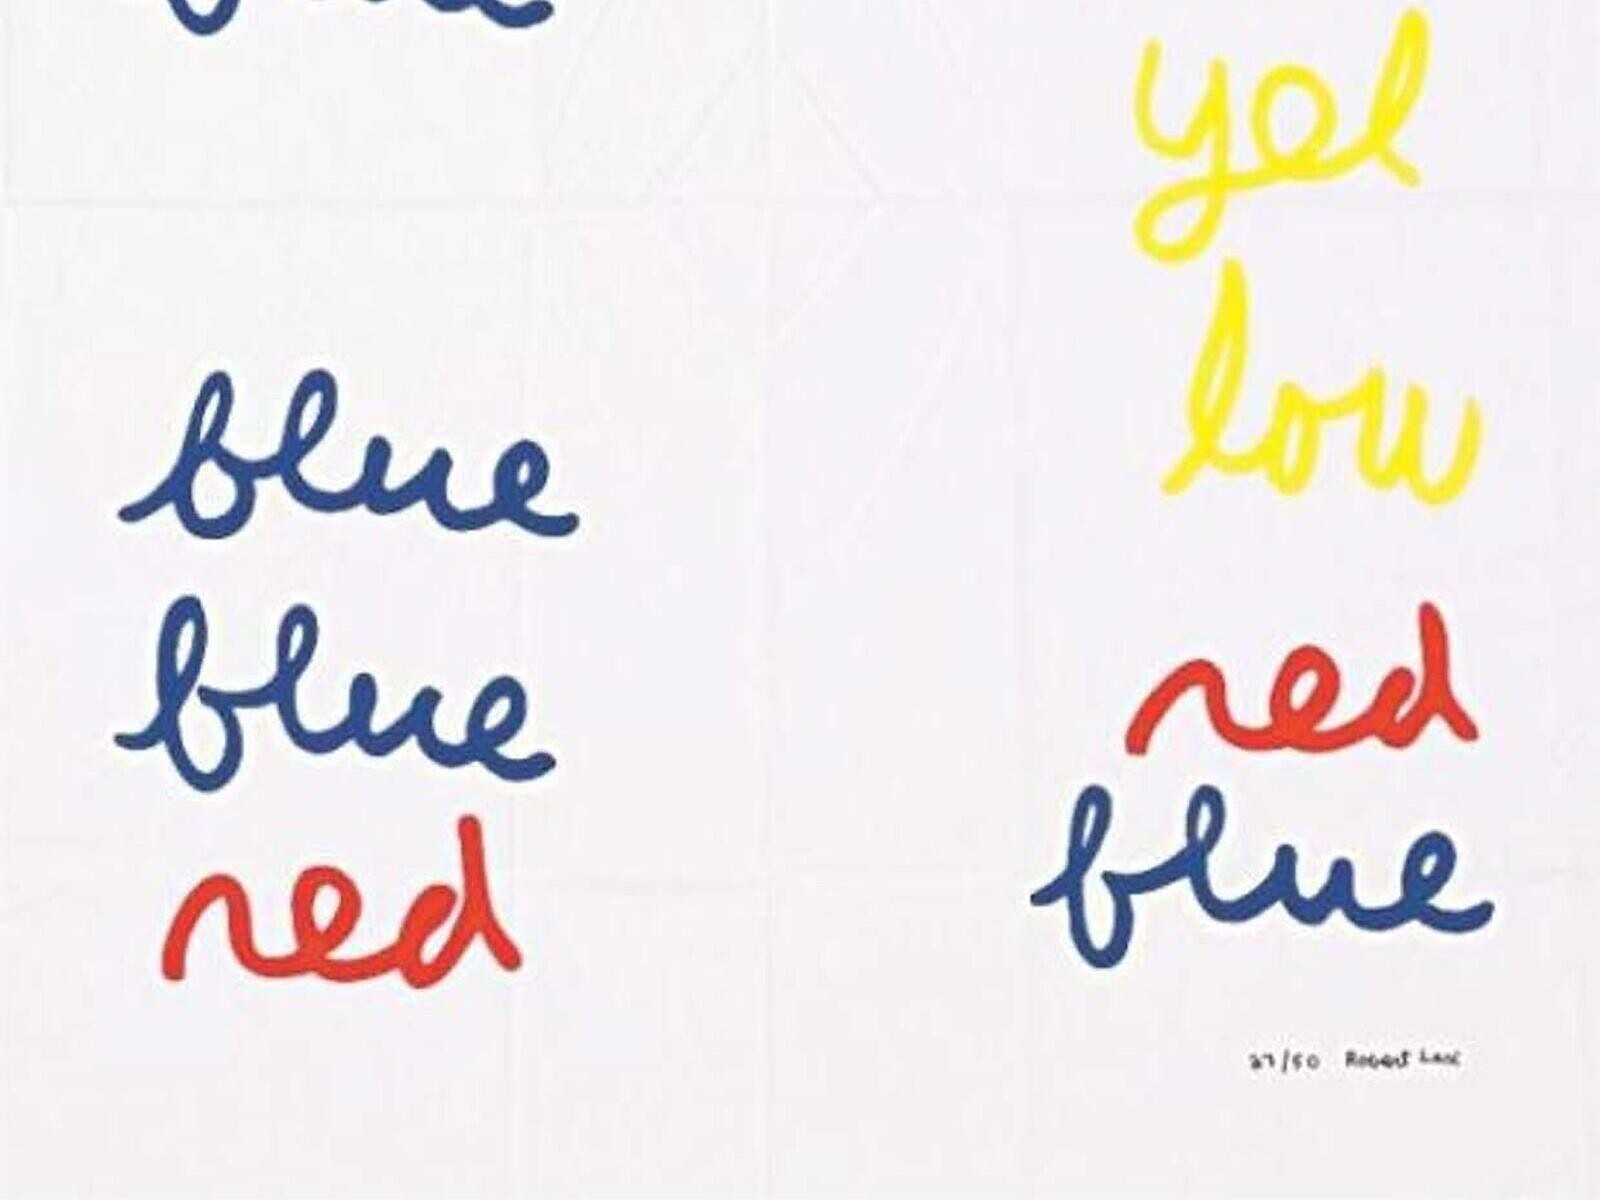 blue
blue
red
yel
low
red
blue
27/50 Robert Lax